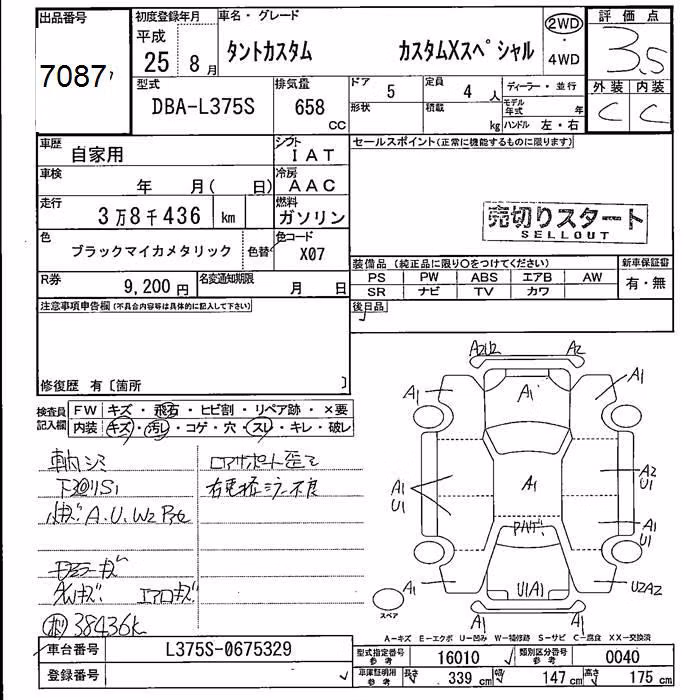 出品番号
7087
初度登録年月
平成
25年 8月
車名・グレード
タントカスタム カスタムXスペシャル
2WD
・
4WD
評価点
3.5
外装 内装
C C
型式
DBA-L375S
排気量
658
CC
ドア
5
定員
4人
形状
積載
kg
ディーラー・並行
モデル年式 年
ハンドル 左・右
車歴
自家用
シフト
IAT
車検
年 月( 日)
冷房
AAC
走行
3万8千436 km
燃料
ガソリン
色
ブラックマイカメタリック
色替
色コード
X07
R券
9,200円
名変通知期限
月 日
セールスポイント(正常に機能するものに限ります)
売切りスタート
SELLOUT
装備品(純正品に限り○をつけてください)
PS PW ABS エアB AW
SR ナビ TV カワ
新車保証書
有・無
後日品
注意事項申告欄(不具合内容等は具体的に記入して下さい)
修復歴 有〔箇所 〕
検査員
記入欄
FW キズ・飛石・ヒビ割・リペア跡・×要
内装 キズ・汚レ・コゲ・穴・スレ・キレ・破レ
車内シミ
下廻りS1
小キズ A.U.W2
エアロキズ
AWキズ
38436k
A2U2
A2
A1
A1
A1
A1
U1
A1
A2
U1
A1
U1
A1
U1A1
U2A2
スペア
A-キズ E-エクボ U-凹み W-補修跡 S-サビ C-腐食 XX-交換済
車台番号
L375S-0675329
登録番号
型式指定番号
参考
16010
類別区分番号
参考
0040
車庫証明用
参考
長さ
339 cm
幅
147 cm
高さ
175 cm